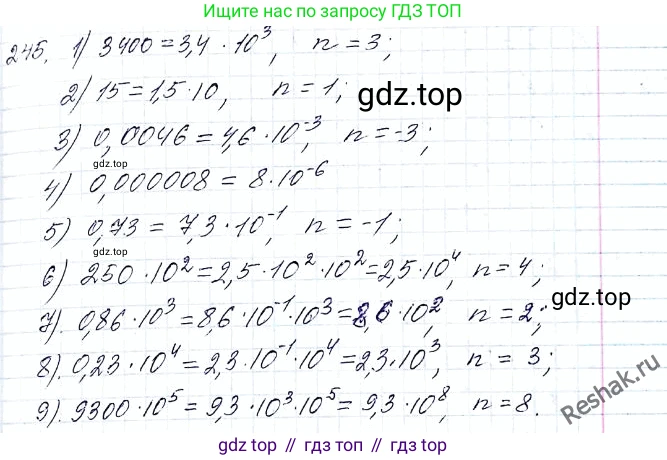 Ищите нас по запросу ГДЗ ТОП
245. 1) 3400 = 3,4 · 10³, n = 3;
2) 15 = 1,5 · 10, n = 1;
gdz.top
3) 0,0046 = 4,6 · 10⁻³, n = -3;
gdz.top
4) 0,000008 = 8 · 10⁻⁶
5) 0,73 = 7,3 · 10⁻¹, n = -1;
6) 250 · 10² = 2,5 · 10² · 10² = 2,5 · 10⁴, n = 4;
gdz.top
7). 0,86 · 10³ = 8,6 · 10⁻¹ · 10³ = 8,6 · 10², n = 2;
8). 0,23 · 10⁴ = 2,3 · 10⁻¹ · 10⁴ = 2,3 · 10³, n = 3;
9). 9300 · 10⁵ = 9,3 · 10³ · 10⁵ = 9,3 · 10⁸, n = 8.
Reshak.ru
gdz top // гдз топ // гдз.top